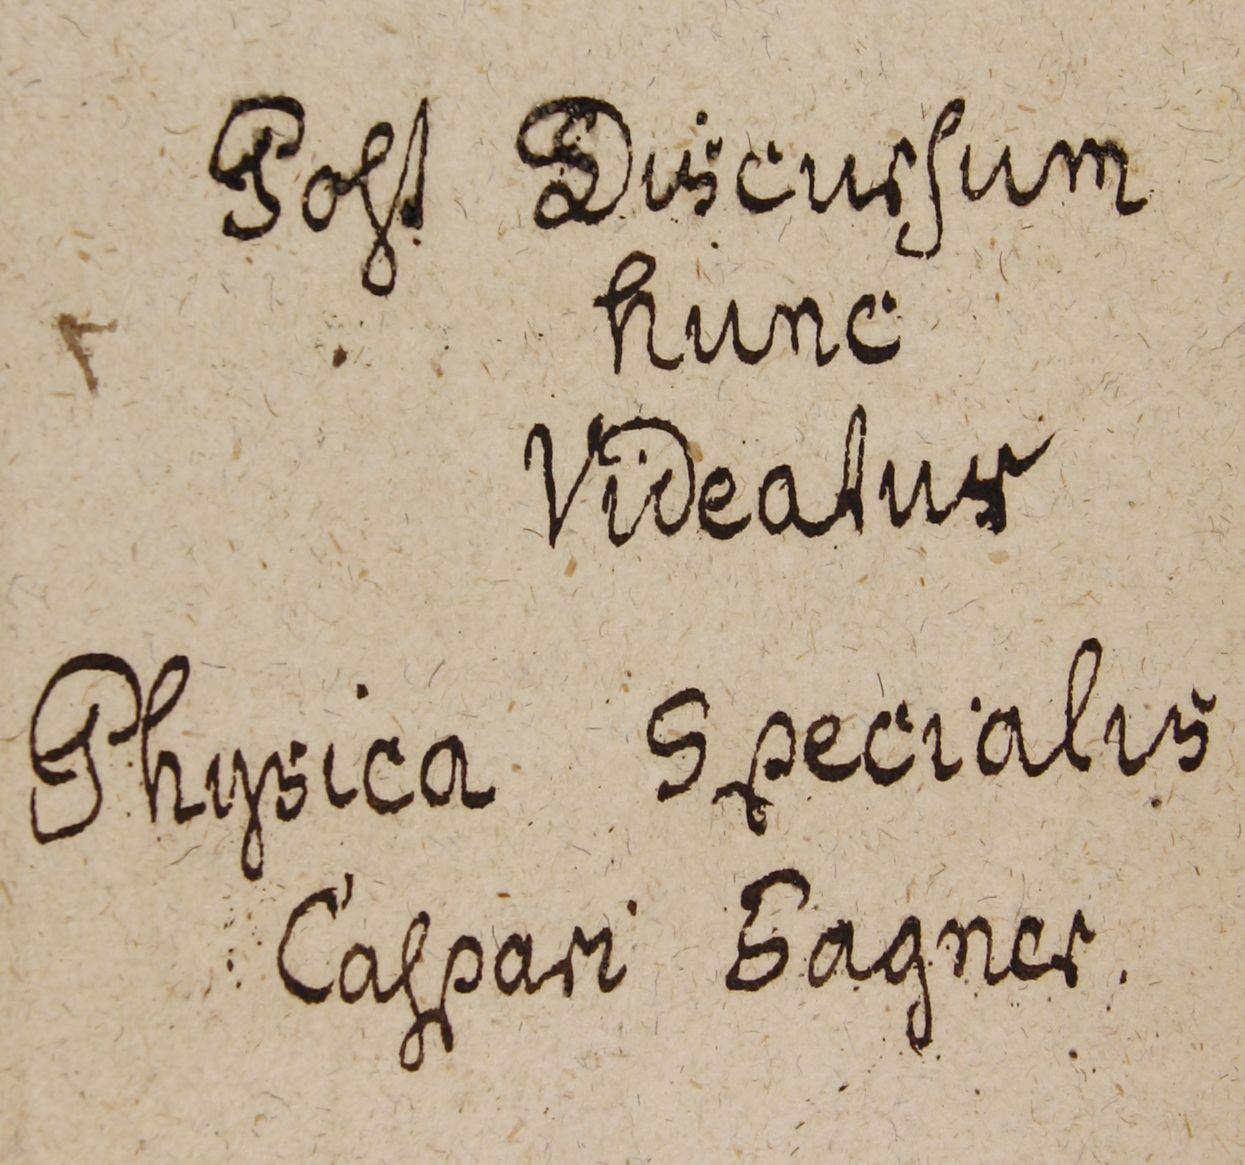 Poſt Discurſum
hunc
Videatur
Physica Specialis
Caſpari Sagner.